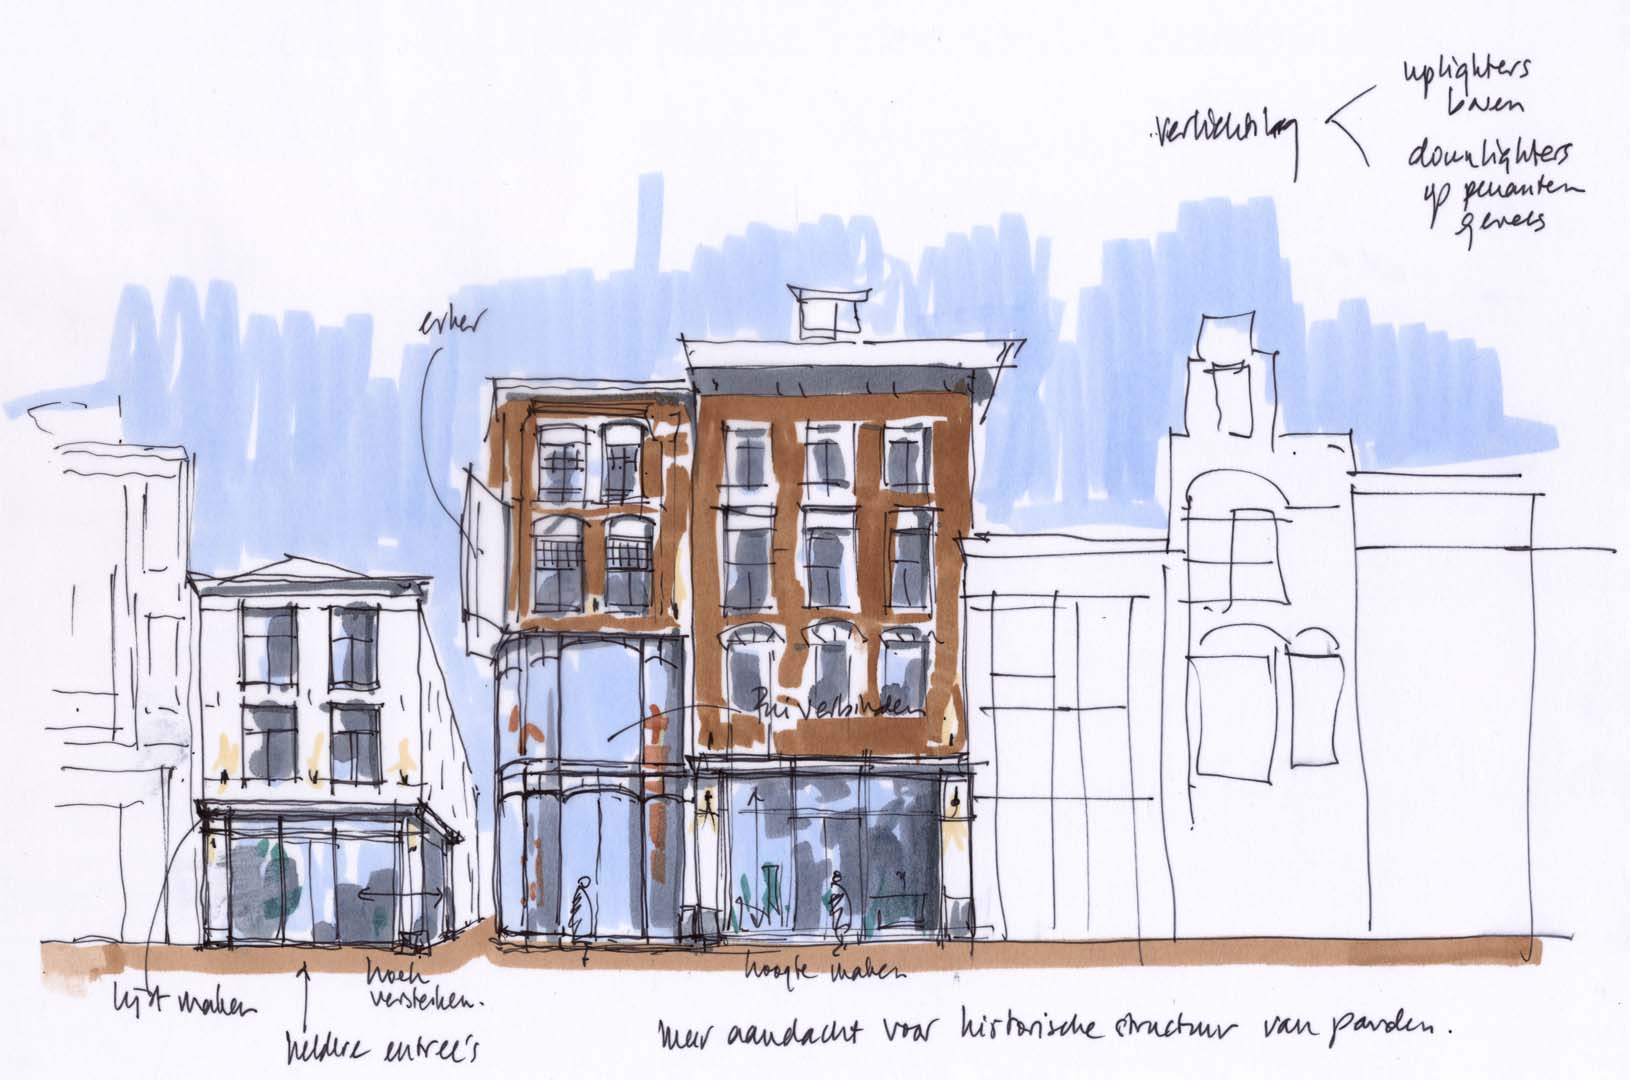 verlichting
uplighters
boven
downlighters
op penanten
gevels
erker
Pui verbinden
lijst maken
hoek
versterken.
heldere entree's
hoogte maken
meer aandacht voor historische structuur van panden.